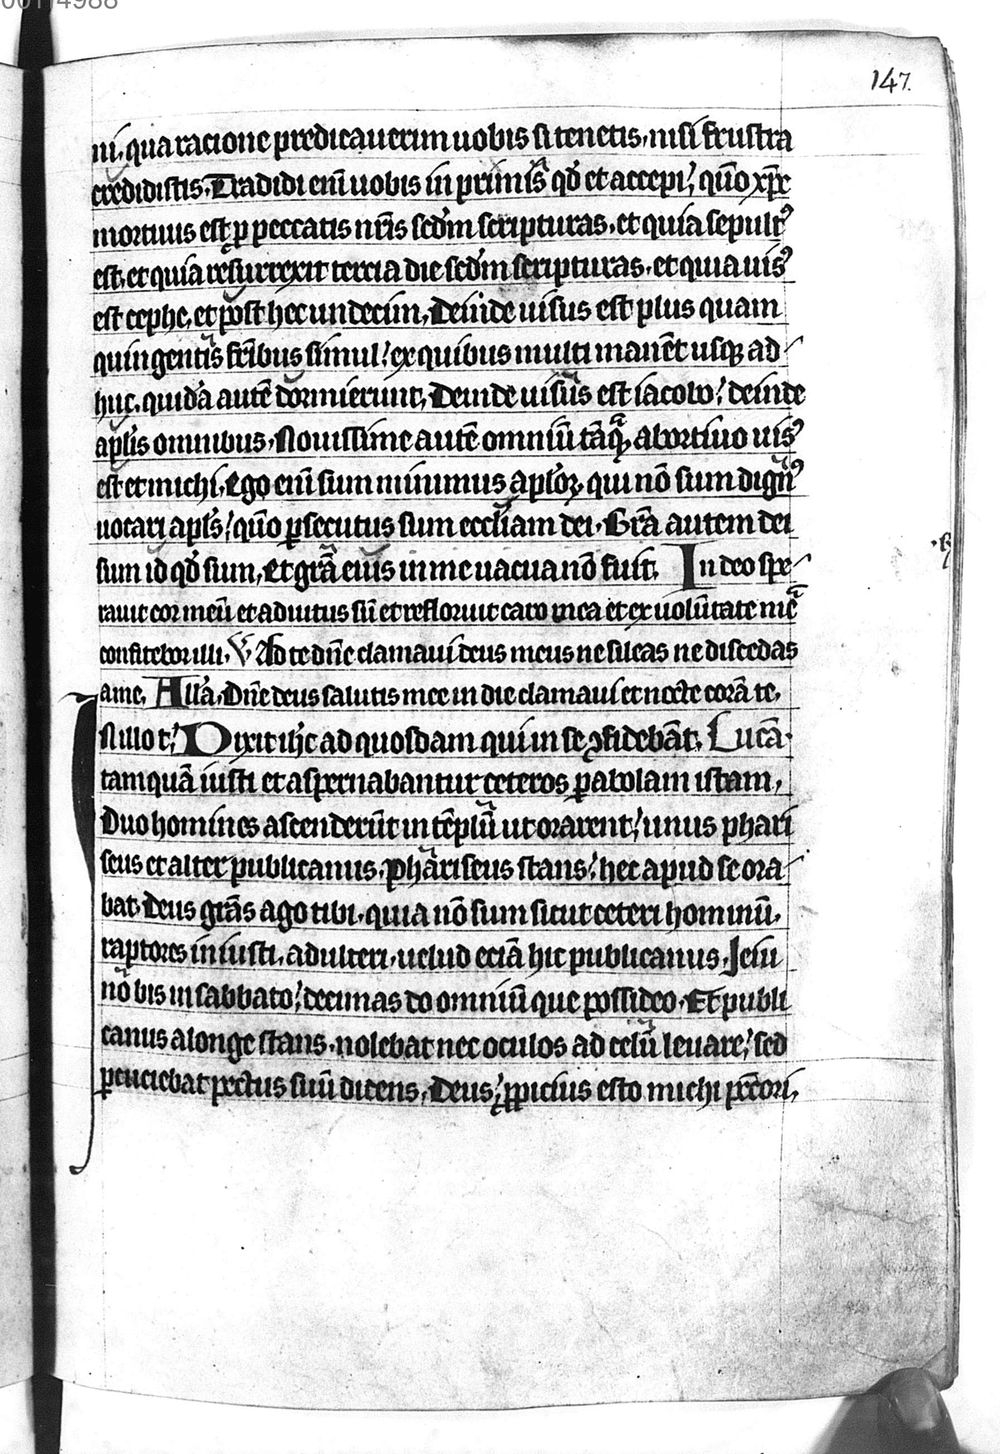 001/4988
147.
ni, qua racione predicauerim uobis si tenetis, nisi frustra
credidistis, Tradidi enī uobis in primis qd̓ et accepi, qūo xp̄c
mortuus est p peccatis nr̄is scd̓m scripturas, et quia sepult᾿
est, et quia resurrexit tercia die scd̓m scripturas, et quia uis᾿
est cephe, et post hec undecim, Deinde uisus est plus quam
quingentis fr̄ibus simul, ex quibus multi manēt usqꝫ ad
huc, quidā autē dormierunt, Deinde uisus est iacobo, deinde
apl̄is omnibus, Nouissime autē omniū tāqͣ abortiuo uis᾿
est et michi, Ego enī sum minimus apl̄oꝝ, qui nō sum dign᾿
uocari apl̄s, qūo ꝑsecutus sum eccl̄iam dei, Gr̄a autem dei
sum id qd̓ sum, et gr̄a eius in me uacua nō fuit, In deo spe
.℟
rauit cor meū et adiutus sū et refloruit caro mea et ex uolūtate mē
confitebor illi, ℣ Ad te dn̄e clamaui deus meus ne sileas ne discedas
a me, All̄a, Dn̄e deus salutis mee in die clamaui et nocte corā te,
In illo t̄, Dixit ih̄c ad quosdam qui in se ꝯfidebāt, Lucā.
tamquā iusti et aspernabantur ceteros ꝑabolam istam,
Duo homines ascenderūt in tēplū ut orarent, unus phari
seus et alter publicanus, Phariseus stans, hec apud se ora
bat, Deus gr̄as ago tibi, quia nō sum sicut ceteri hominū,
raptores iniusti, adulteri, uelud eciā hic publicanus, Jeiu
no bis in sabbato, decimas do omniū que possideo, Et publi
canus a longe stans, nolebat nec oculos ad celū leuare, sed
ꝑcuciebat pectus suū dicens, Deus, ꝓpicius esto michi pecc̄ori,